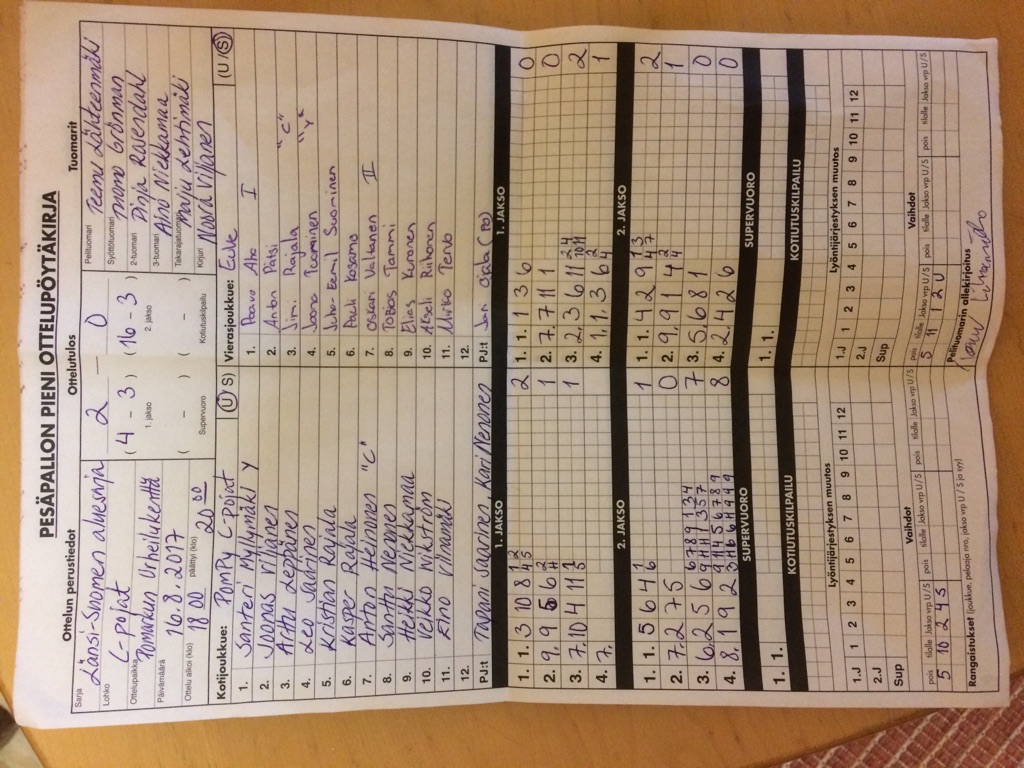 PESÄPALLON PIENI OTTELUPÖYTÄKIRJA
Ottelun perustiedot
Ottelutulos
Tuomarit
Sarja Länsi-Suomen aluesarja
Lohko C-pojat
Ottelupaikka Pomarkun Urheilukenttä
Päivämäärä 16.8.2017
Ottelu alkoi (klo) 18 00 päättyi (klo) 20 00
2 — 0
( 4 - 3 ) ( 16 - 3 )
1. jakso 2. jakso
( - ) ( - )
Supervuoro Kotiutuskilpailu
Pelituomari Teemu Lähteenmäki
Syöttötuomari Mamo Grönman
2-tuomari Pinja Ravendahl
3-tuomari Aino Niekkamaa
Takarajatuomari Maiju Lehtimäki
Kirjuri Noora Viljanen
Kotijoukkue: PomPy C-pojat (U/S)
1. Santeri Myllymäki Y
2. Joonas Viljanen
3. Arttu Leppänen
4. Leo Saarinen
5. Kristian Rajala
6. Kasper Rajala
7. Anton Helminen "C"
8. Santtu Nenonen
9. Heikki Niekkamaa
10. Veikko Wikström
11. Eino Vilhamäki
12.
PJ:t Tapani Saarinen, Kari Nenonen
Vierasjoukkue: EuRe (U/S)
1. Paavo Aho I
2. Anton Pätsi
3. Simi Raijala "C"
4. Joona Tuominen "Y"
5. Juho-Eemil Suominen
6. Pauli Kosamo
7. Oskari Valtanen II
8. Tobias Tammi
9. Elias Kuronen
10. Akseli Riihonen
11. Miiko Tervo
12.
PJ:t Jan Ojala (PO)
1. JAKSO
1. JAKSO
1. 1. 3 10 8 1 2 4 5 2
2. 9. 9 5 6 2 4 1
3. 7. 10 4 11 1 5 1
4. 7.
1. 1. 1 3 6 0
2. 7. 7 11 1 0
3. 2. 3 6 11 2 4 10 11 2
4. 1. 1. 3 6 2 4 1
2. JAKSO
2. JAKSO
1. 1. 5 6 4 1 6 1
2. 7. 2 7 5 0
3. 6. 2 5 6 6 7 8 9 1 3 4 9 11 11 1 3 5 7 7
4. 8. 1 9 2 9 11 4 5 6 7 8 9 3 11 6 11 4 9 4 9 8
1. 1. 4 2 9 1 3 4 7 2
2. 9. 9 1 4 2 4 1
3. 5. 6 8 1 0
4. 2. 4 2 6 0
SUPERVUORO
SUPERVUORO
1. 1.
1. 1.
KOTIUTUSKILPAILU
KOTIUTUSKILPAILU
Lyöntijärjestyksen muutos
1.J 1 2 3 4 5 6 7 8 9 10 11 12
2.J
Sup
Lyöntijärjestyksen muutos
1.J 1 2 3 4 5 6 7 8 9 10 11 12
2.J
Sup
Vaihdot
pois tilalle Jakso vrp U/S pois tilalle Jakso vrp U/S pois tilalle Jakso vrp U/S
5 10 2 4 S
Vaihdot
pois tilalle Jakso vrp U/S pois tilalle Jakso vrp U/S pois tilalle Jakso vrp U/S
5 11 1 2 U
Rangaistukset (joukkue, pelaaja nro, jakso, vrp U/S ja syy)
Pelituomarin allekirjoitus